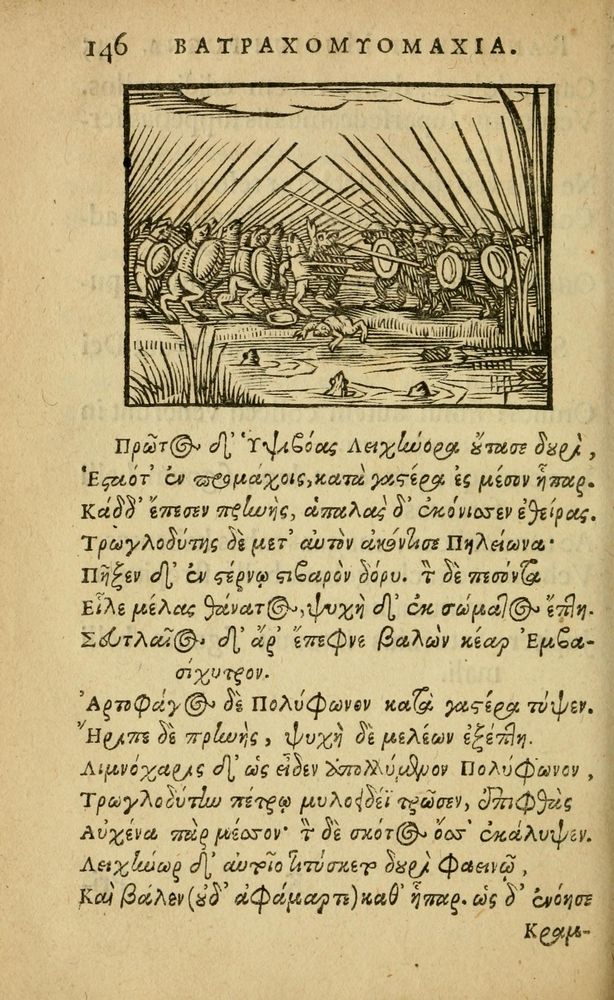 146 ΒΑΤΡΑΧΟΜΥΟΜΑΧΙΑ.
Πρῶτος δ' Ὑψιβόας Λειχήνορα οὔτασε δουρὶ,
Ἑσταότ' ἐν προμάχοις, κατὰ γαστέρα ἐς μέσον ἧπαρ.
Κάδδ' ἔπεσεν πρηνὴς, ἁπαλὰς δ' ἐκόνισσεν ἐθείρας.
Τρωγλοδύτης δὲ μετ' αὐτὸν ἀκόντισε Πηλείωνα·
Πῆξεν δ' ἐν στέρνῳ στιβαρὸν δόρυ. τὸν δὲ πεσόντα
Εἷλε μέλας θάνατος, ψυχὴ δ' ἐκ σώματος ἔπτη.
Σευτλαῖος δ' ἄρ' ἔπεφνε βαλὼν κέαρ Ἐμβα-
σίχυτρον.
Ἀρτοφάγος δὲ Πολύφωνον κατὰ γαστέρα τύψεν.
Ἤριπε δὲ πρηνὴς, ψυχὴ δὲ μελέων ἐξέπτη.
Λιμνόχαρις δ' ὡς εἶδεν ἀπολλύμενον Πολύφωνον,
Τρωγλοδύτην πέτρῳ μυλοειδέϊ τρῶσεν, ἐπιφθὰς
Αὐχένα πὰρ μέσσον· τὸν δὲ σκότος ὄσσ' ἐκάλυψεν.
Λειχήνωρ δ' αὐτοῖο τιτύσκετο δουρὶ φαεινῷ,
Καὶ βάλεν (οὐδ' ἀφάμαρτε) καθ' ἧπαρ. ὡς δ' ἐνόησε
Κραμ-